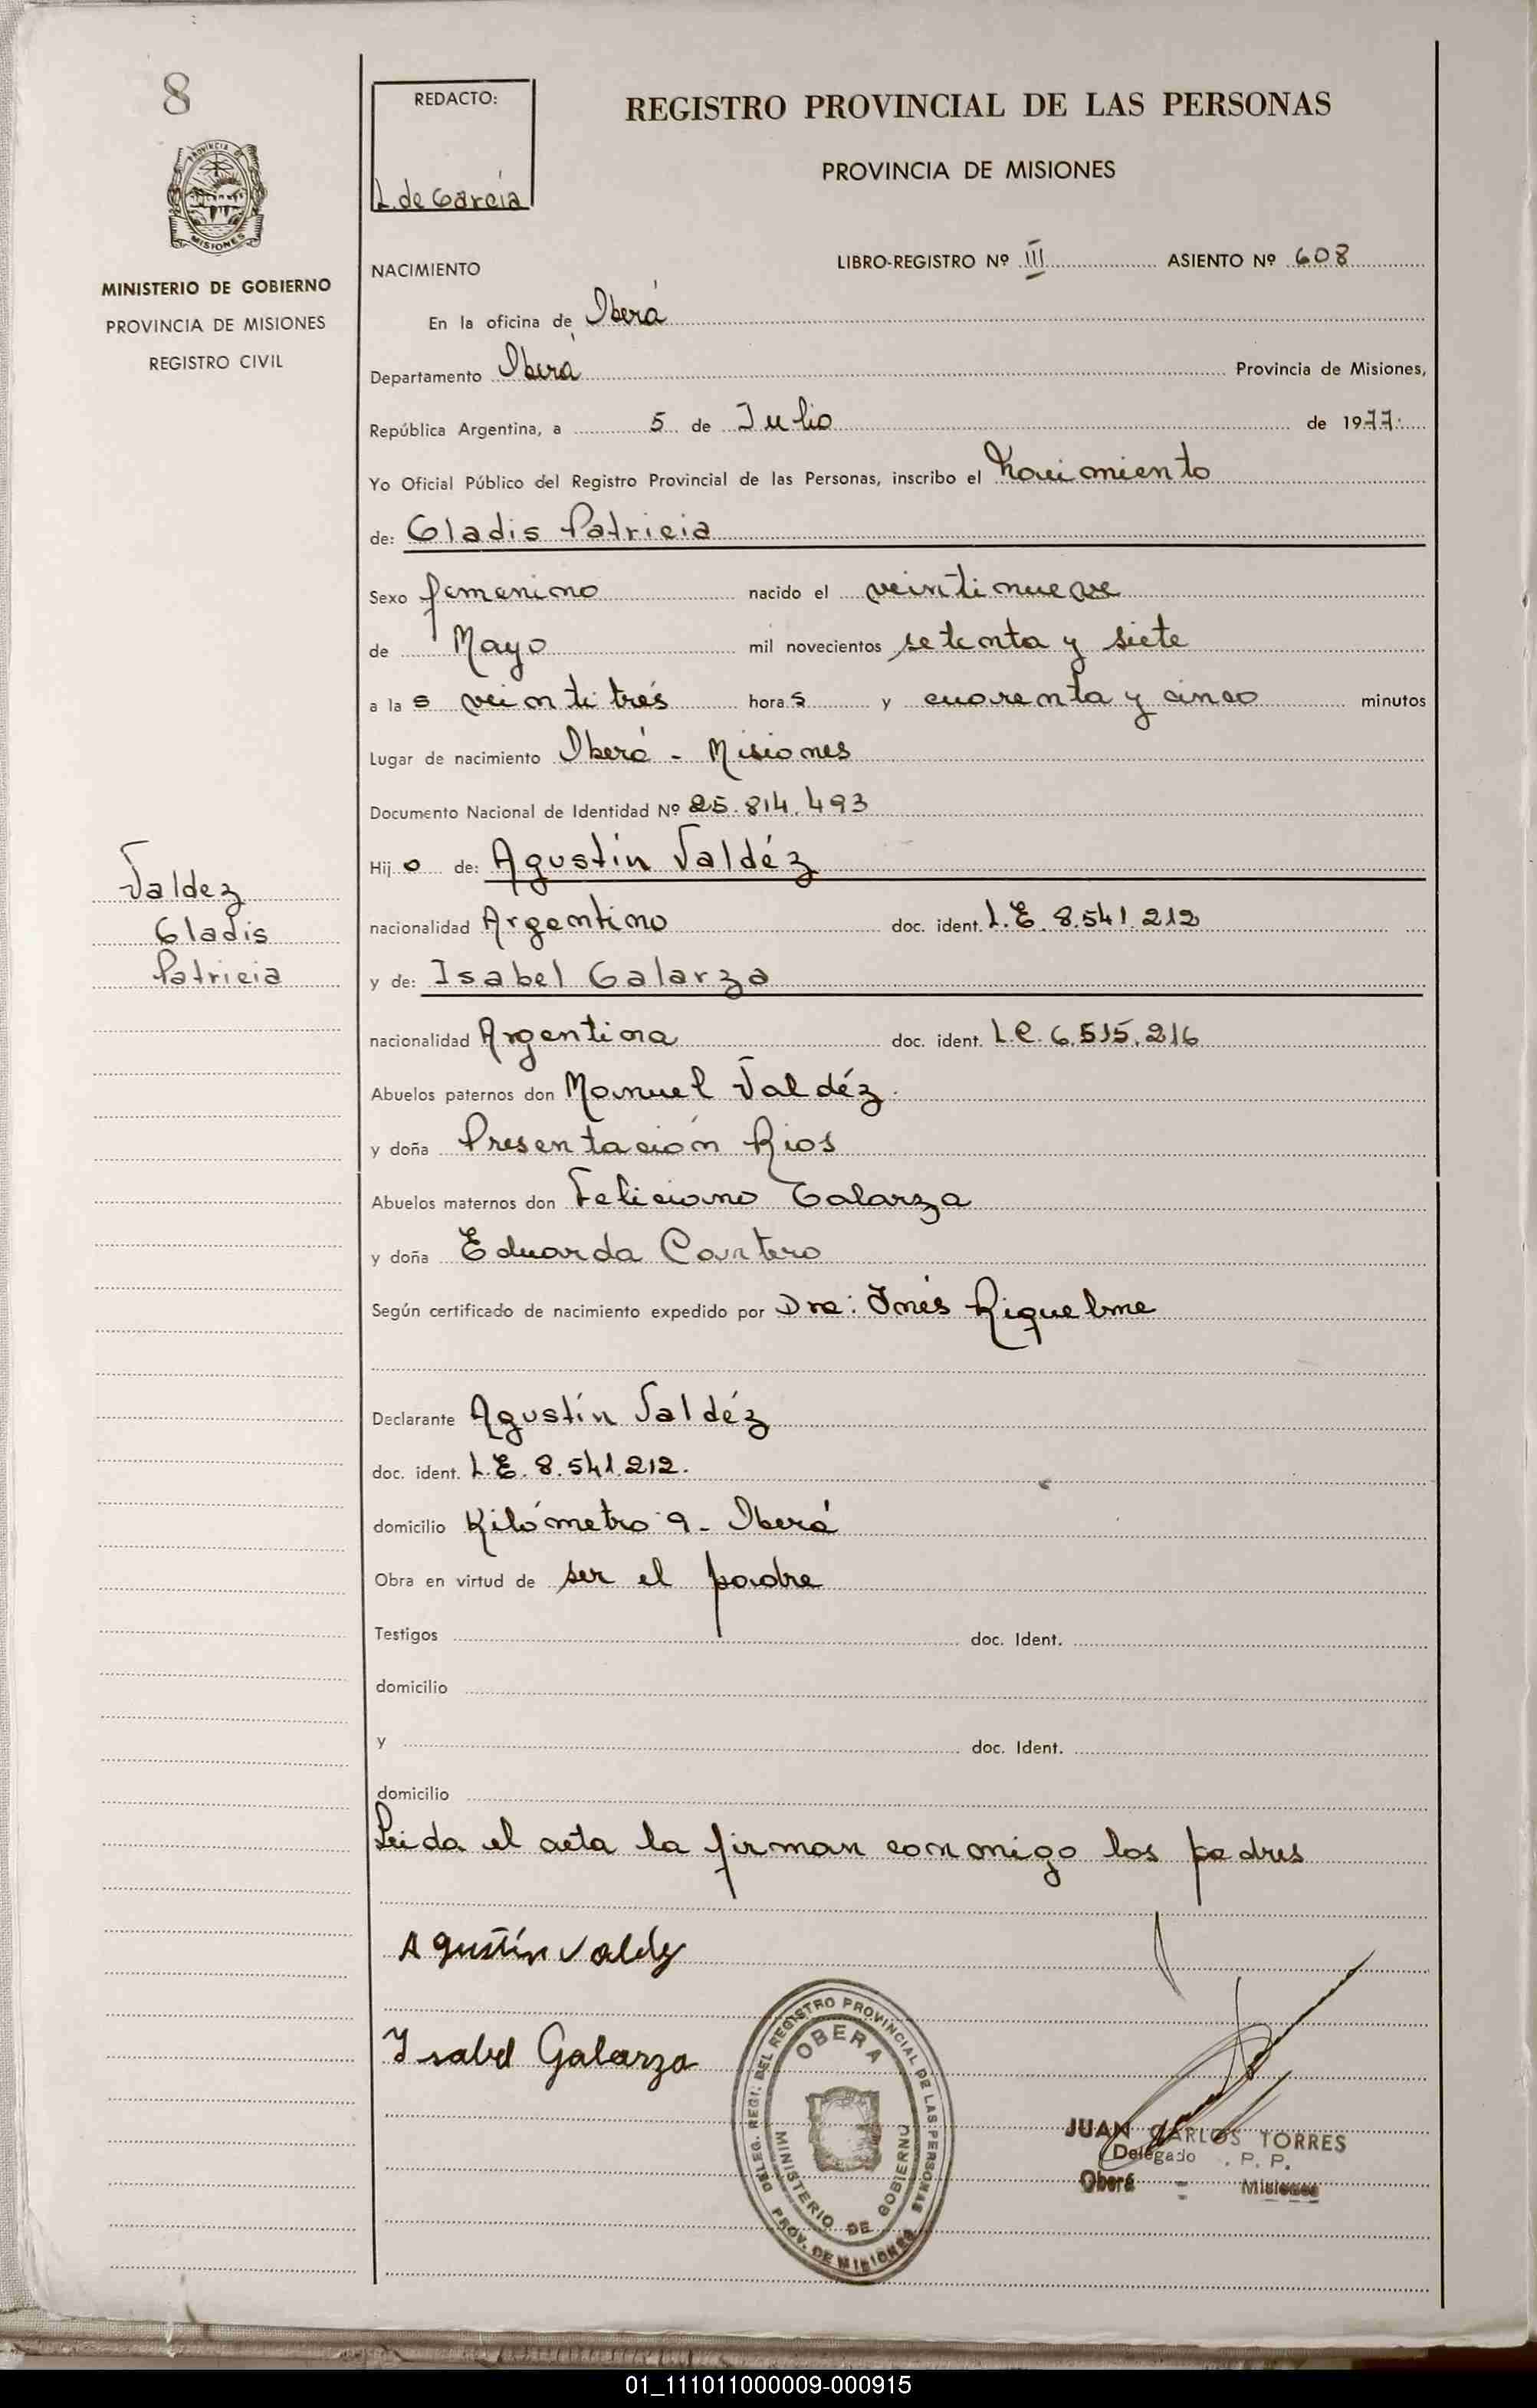 8
REDACTO:
L. de García
REGISTRO PROVINCIAL DE LAS PERSONAS
PROVINCIA DE MISIONES
PROVINCIA DE
MISIONES
MINISTERIO DE GOBIERNO
PROVINCIA DE MISIONES
REGISTRO CIVIL
NACIMIENTO
LIBRO-REGISTRO Nº III ASIENTO Nº 608
En la oficina de Oberá
Departamento Oberá Provincia de Misiones,
República Argentina, a 5 de Julio de 1977.
Yo Oficial Público del Registro Provincial de las Personas, inscribo el Nacimiento
de: Gladis Patricia
Sexo femenino nacido el veintinueve
de Mayo mil novecientos setenta y siete
a las veintitrés horas y cuarenta y cinco minutos
Lugar de nacimiento Oberá - Misiones
Documento Nacional de Identidad Nº 25.814.493
Hijo de: Agustín Valdéz
nacionalidad Argentino doc. ident. L.E. 8.541.212
y de: Isabel Galarza
nacionalidad Argentina doc. ident. L.C. 6.515.216
Abuelos paternos don Manuel Valdéz.
y doña Presentación Rios
Abuelos maternos don Feliciano Galarza
y doña Eduarda Cantero
Según certificado de nacimiento expedido por Dra: Inés Riquelme
Valdez
Gladis
Patricia
Declarante Agustín Valdéz
doc. ident. L.E. 8.541.212.
domicilio Kilómetro 9- Oberá
Obra en virtud de ser el padre
Testigos doc. Ident.
domicilio
y doc. Ident.
domicilio
Leida el acta la firman conmigo los padres
Agustín Valdez
Isabel Galarza
DELEG. REGI. DEL REGISTRO PROVINCIAL DE LAS PERSONAS
OBERA
MINISTERIO DE GOBIERNO
PROV. DE MISIONES
JUAN CARLOS TORRES
Delegado P. P.
Oberá - Misiones
01_111011000009-000915